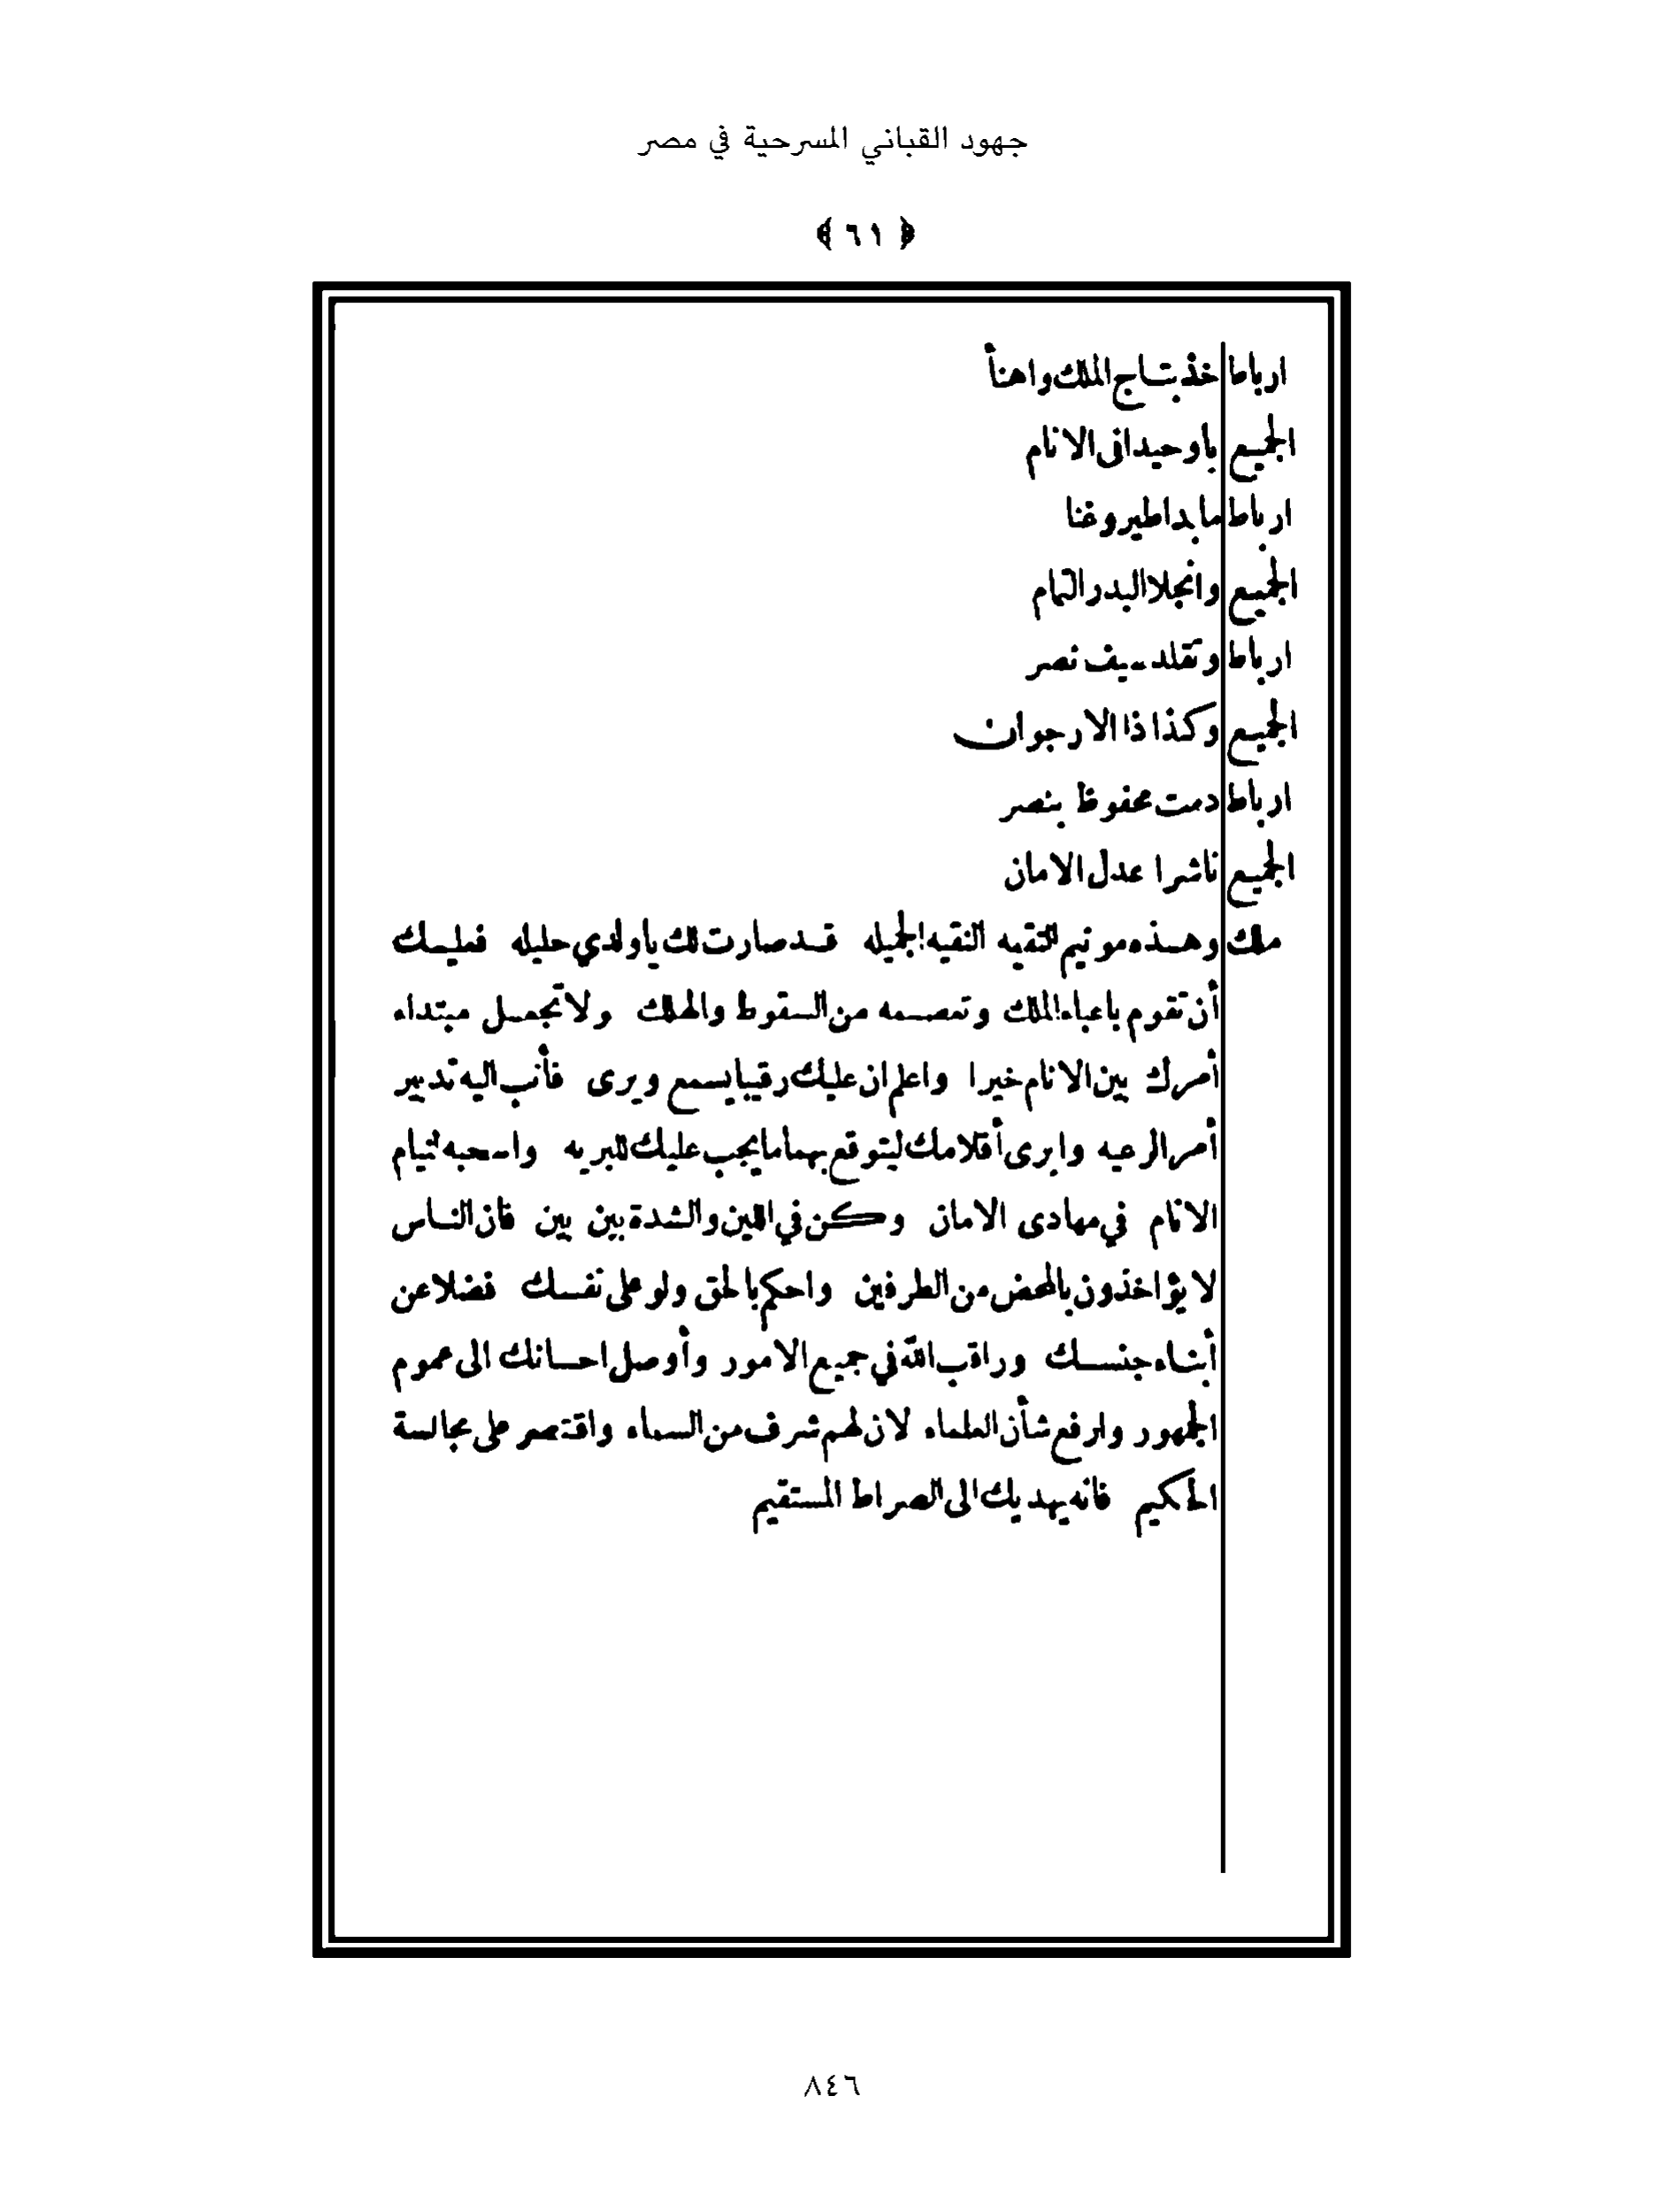 جهود القباني المسرحية في مصر
﴿ ٦١ ﴾
ارباط خذ بتاج الملك واهنأ
الجميع ياوحيدا فى الانام
ارباط ما بدا طير وغنا
الجميع وانجلا البدر التمام
ارباط وتقلد سيف نصر
الجميع وكذا ذا الارجوان
ارباط دمت محفوظ بنصر
الجميع ناشرا عدل الامان
ملك وهذه مونيم التقيه النقيه الجميله قد صارت لك ياولدي حليله فعليك
أن تقوم باعباء الملك وتعصمه من السقوط والهلك ولا تجعل مبتداء
أمرك بين الانام خيرا واعلم ان عليك رقيبا يسمع ويرى فأنب اليه تدبير
أمر الرعيه وابرى أقلامك ليتوقع بهما ما يجب عليك للبريه واسحبه لنيام
الانام في مهادى الامان وكن في اللين والشدة بين بين فان الناس
لا يؤاخذون بالمحض من الطرفين واحكم بالحق ولو على نفسك فضلا عن
أبناء جنسك وراقب الله في جميع الامور وأوصل احسانك الى عموم
الجمهور وارفع شأن العلماء لان لهم شرف من السماء واقتصر على مجالسة
الحكيم فانه يهديك الى الصراط المستقيم
٨٤٦